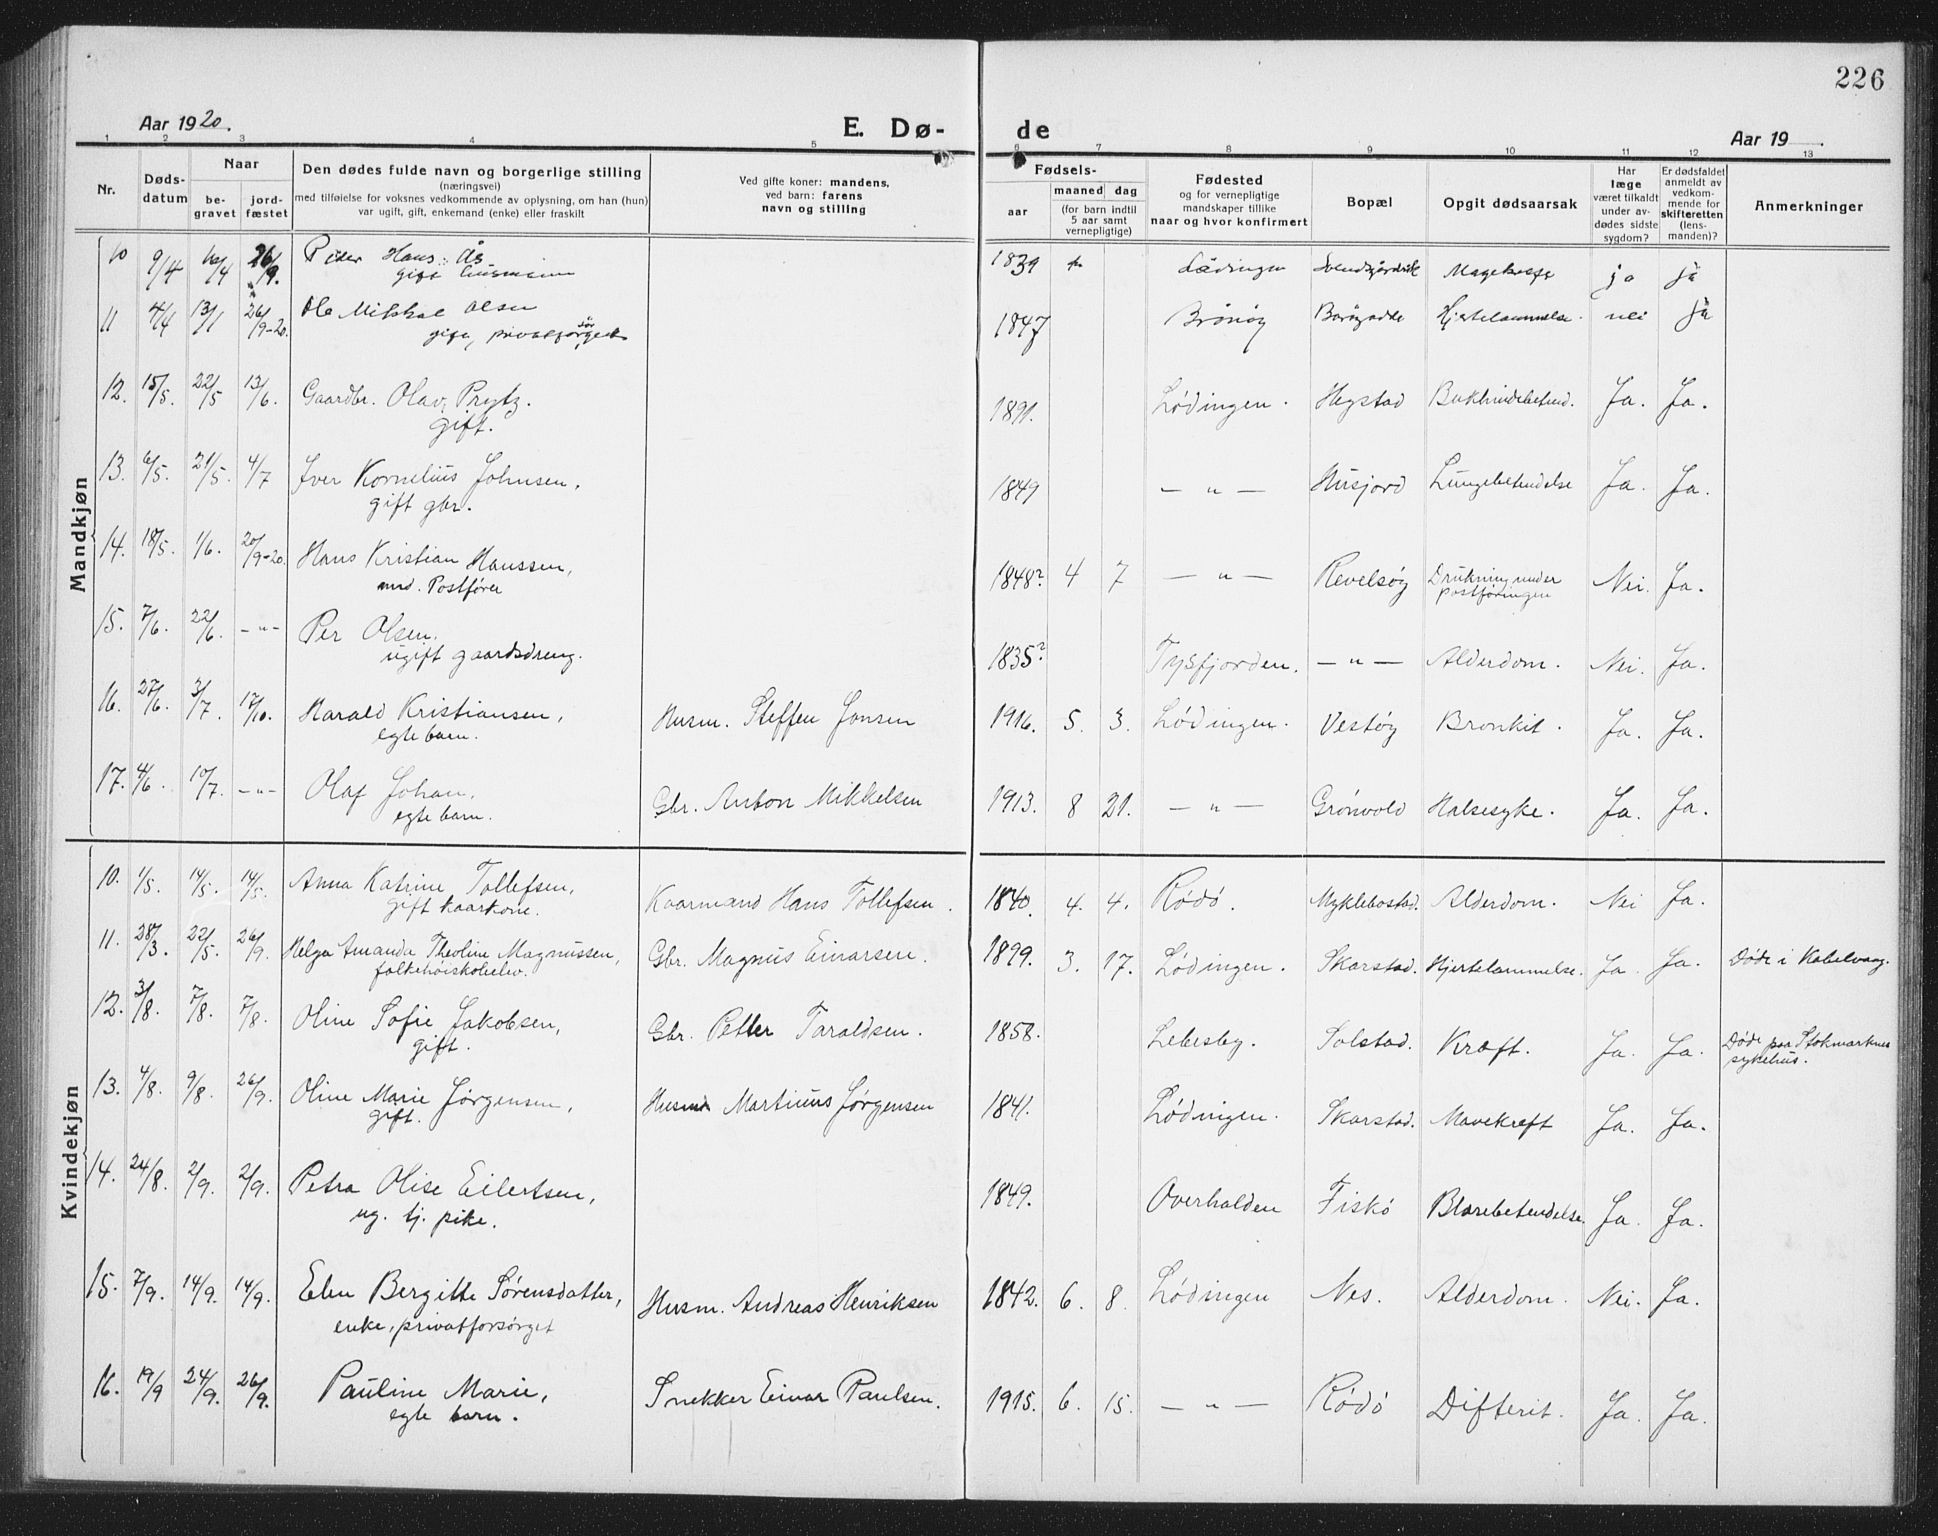 226
Aar 1920.
E. Dø-
de
Aar 19
1 2 3 4 5 6 7 8 9 10 11 12 13
Nr.
Døds-
datum
Naar
be-
gravet
jord-
fæstet
Den dødes fulde navn og borgerlige stilling
(næringsvei)
med tilføielse for voksnes vedkommende av oplysning, om han (hun)
var ugift, gift, enkemand (enke) eller fraskilt
Ved gifte koner: mandens,
ved barn: farens
navn og stilling
Fødsels-
aar
maaned dag
(for barn indtil
5 aar samt
vernepligtige)
Fødested
og for vernepligtige
mandskaper tillike
naar og hvor konfirmert
Bopæl
Opgit dødsaarsak
Har
læge
været tilkaldt
under av-
dødes sidste
sygdom?
Er dødsfaldet
anmeldt av
vedkom-
mende for
skifteretten
(lens-
manden)?
Anmerkninger
Mandkjøn
10 9/4 16/4 26/9. Peder Hans. Ås 1839 Lødingen ja ja
gift husmann
11 4/4 13/1 26/9-20. Ole Mikkal Olsen 1847 Brönöy Hjertelammelse. nei ja
gift, privatforsørget
12. 15/5. 22/5 13/6. Gaardbr. Olav Prytz. 1891. Lødingen. Hegstad Bukhindebetend. Ja. Ja.
gift.
13. 6/5. 21/5. 4/7 Iver Kornelius Johnsen, 1849 — „ — Husjord Lungebetendelse Ja. Ja.
gift gbr.
14. 18/5. 1/6. 20/9-20. Hans Kristian Hanssen, 1848? 4 7 — „ — Revelsøy Drukning under Nei. Ja.
postføringen
Postfører
15. 7/6. 22/6. -„- Per Olsen. 1835? Tysfjorden. — „ — Alderdom. Nei. Ja.
ugift gaardsdreng.
16. 27/6. 3/7. 17/10. Harald Kristiansen, Husm. Steffen Jonsen 1916. 5. 3. Lødingen. Vestøy Bronkit. Ja. Ja.
egte barn.
17. 4/6. 10/7. -„- Olaf Johan, Gbr. Anton Mikkelsen 1913. 8 21. — „ — Grönvold Halsesyke. Ja. Ja.
egte barn.
Kvindekjøn
10. 1/5. 14/5. 14/5. Anna Katrine Tollefsen, Kaarmand Hans Tollefsen. 1840. 4. 4. Rödö. Myklebostad. Alderdom. Nei Ja.
gift kaarkone.
11. 28/3. 22/5. 26/9. Helga Amanda Theoline Magnussen, Gbr. Magnus Einarsen. 1899. 3. 17. Lødingen. Skarstad. Hjertelammelse. Ja. Ja. Døde i Kabelvaag.
folkehøiskoleelev.
12. 3/8. 7/8. 7/8. Oline Sofie Jakobsen, Gbr. Petter Taraldsen. 1858. Lebesby. Solstad. Kræft. Ja. Ja. Døde paa Stokmarknes
sykehus.
gift.
13. 4/8. 9/8. 26/9. Oline Marie Jørgensen, Husmd Martinus Jørgensen 1841. Lødingen. Skarstad. Mavekræft Ja. Ja.
gift.
14. 24/8. 2/9. 2/9. Petra Olise Eilertsen, 1849. Overhalden Fiskö Blærebetendelse. Ja. Ja.
ug. tj. pike.
15. 7/9. 14/9. 14/9. Elen Bergitte Sørensdatter, Husm. Andreas Henriksen 1842. 6. 8. Lødingen Nes. Alderdom. Nei. Ja.
enke, privatforsørget
16. 19/9 24/9. 26/9. Pauline Marie, Snekker Einar Paulsen. 1915. 6. 15. — „ — Rödö Difterit. Ja. Ja.
egte barn.